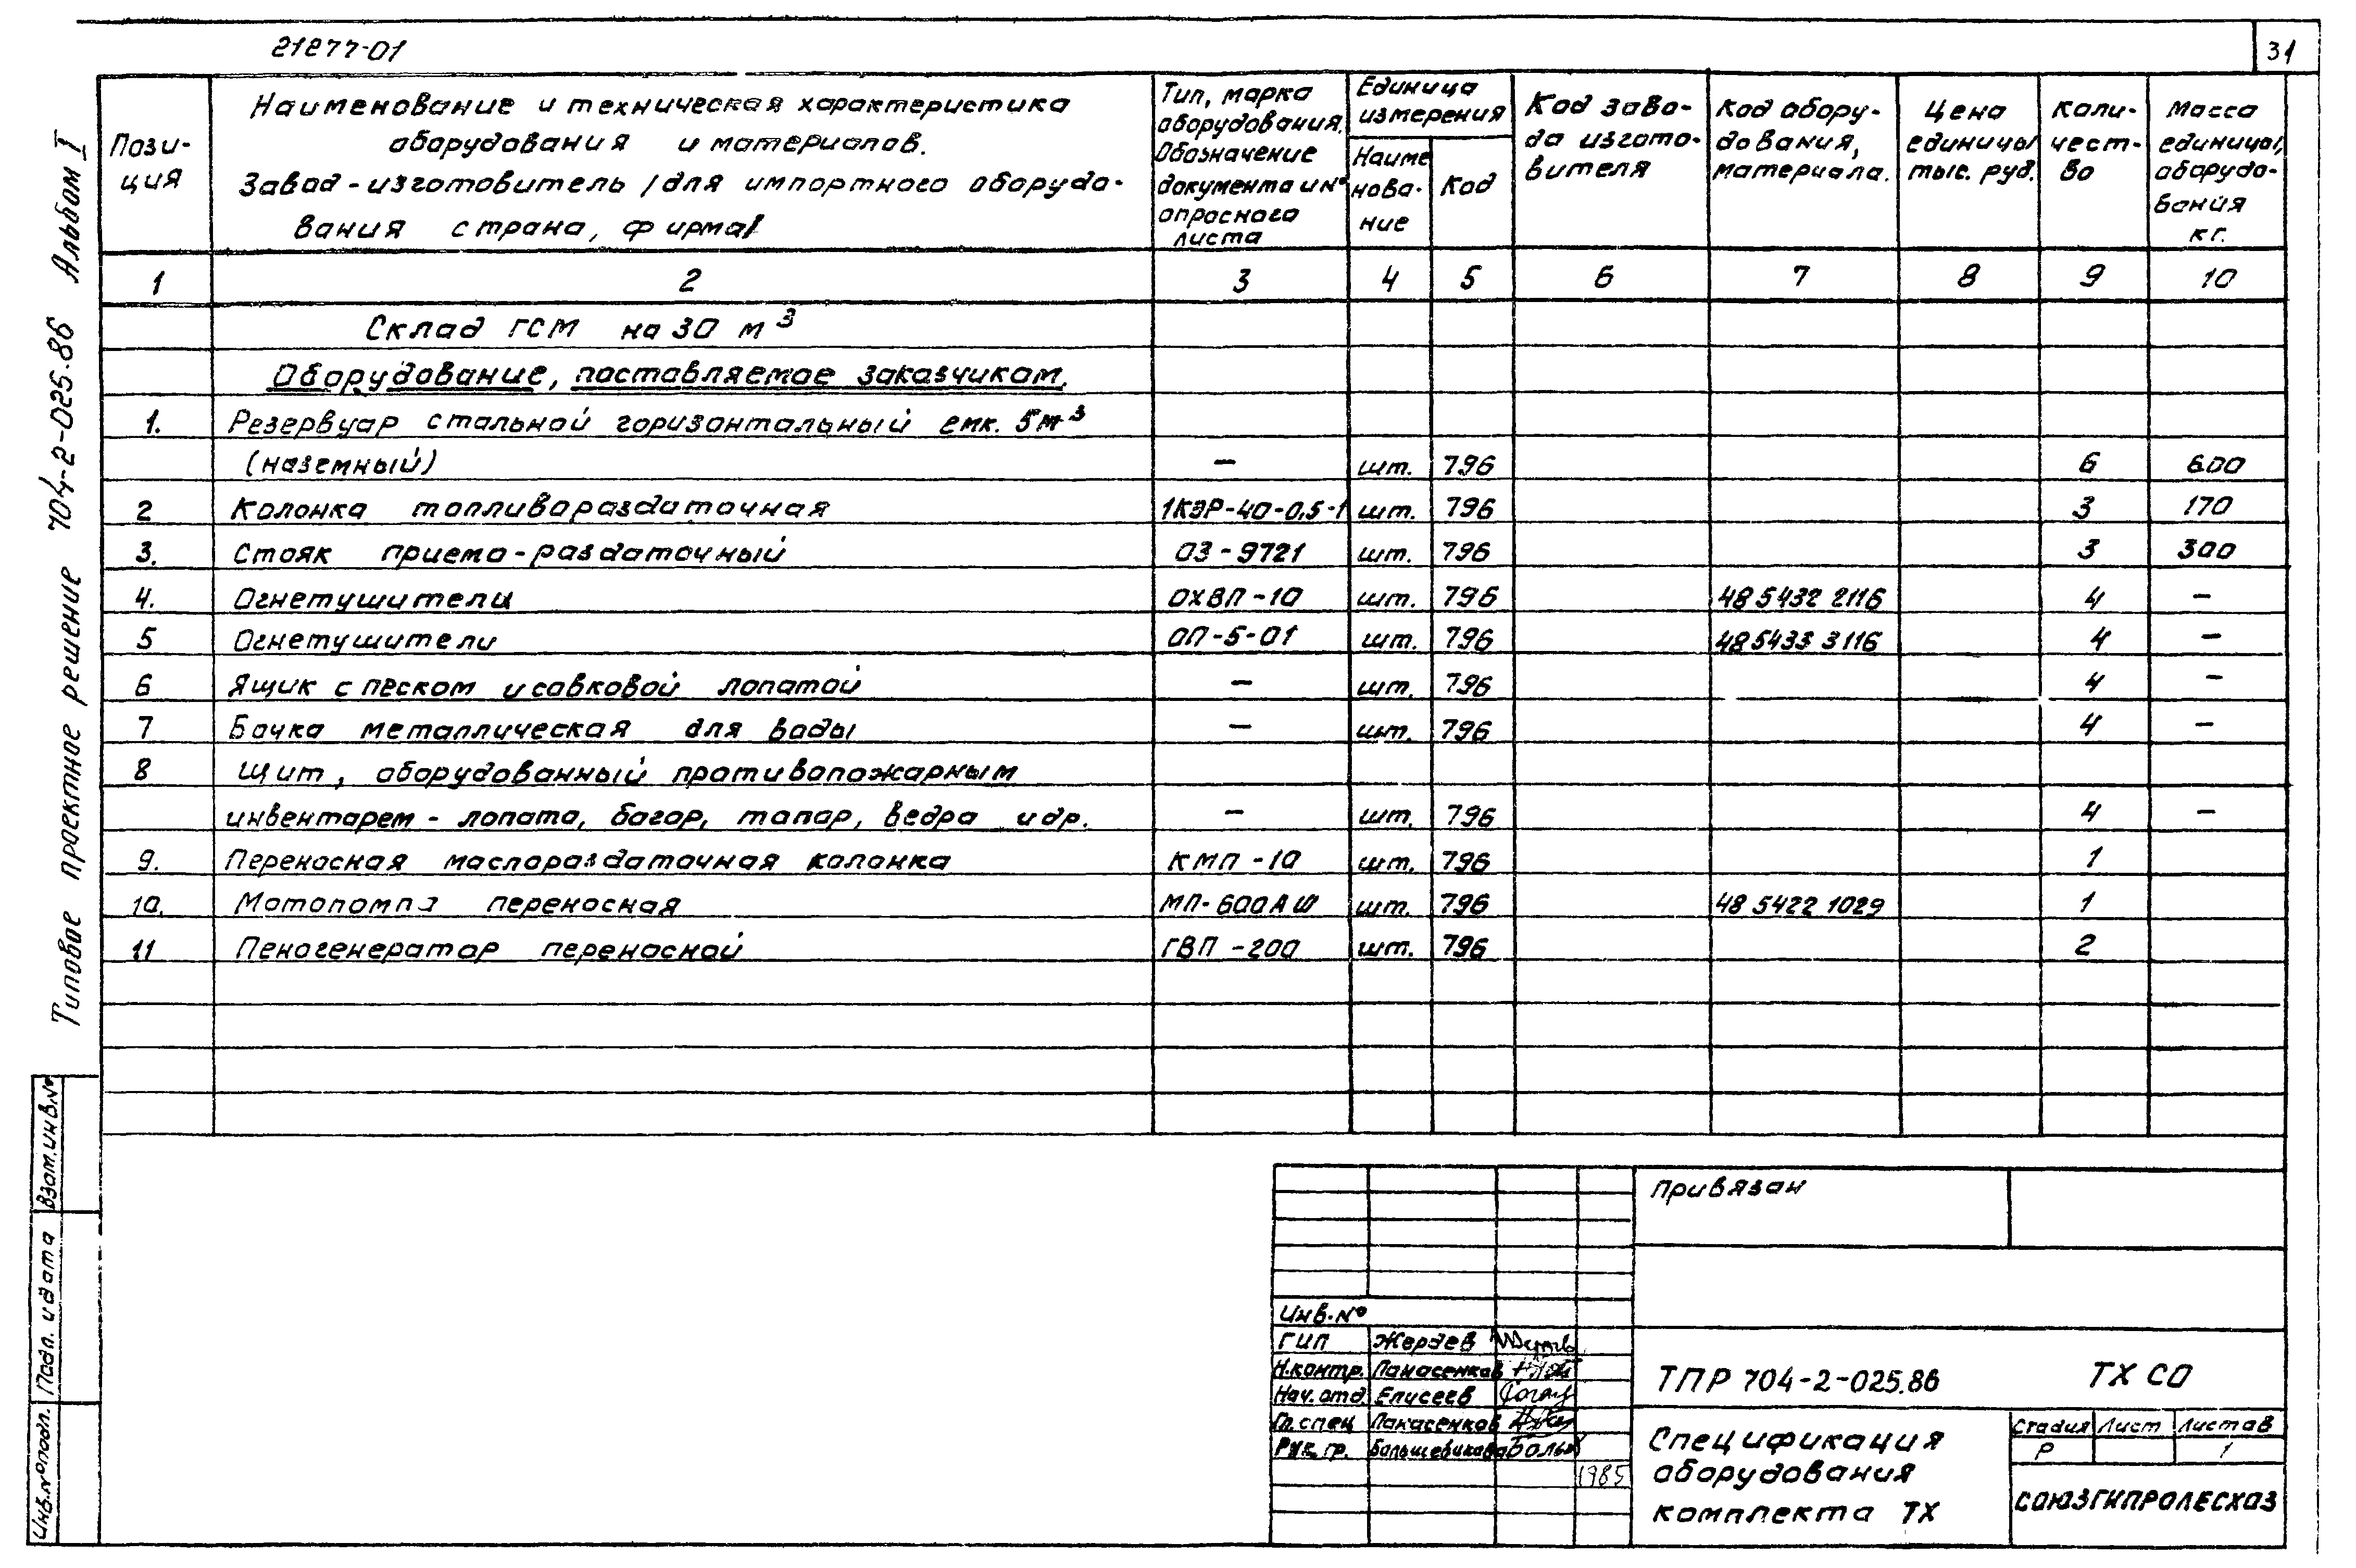 21877-01
31
Типовое проектное решение 704-2-025.86 Альбом I
Пози-
ция
Наименование и техническая характеристика
оборудования и материалов.
Завод-изготовитель /для импортного оборудо-
вания страна, фирма/
Тип, марка
оборудования.
Обозначение
документа и №
опросного
листа
Единица
измерения
Наиме
нова-
ние
Код
Код заво-
да изгото-
вителя
Код обору-
дования,
материала.
Цена
единицы
тыс. руб.
Коли-
чест-
во
Масса
единицы,
оборудо-
вания
кг.
1 2 3 4 5 6 7 8 9 10
Склад ГСМ на 30 м³
Оборудование, поставляемое заказчиком.
1. Резервуар стальной горизонтальный емк. 5м³
(наземный) – шт. 796 6 600
2 Колонка топливораздаточная 1КЭР-40-0,5-1 шт. 796 3 170
3. Стояк приемо-раздаточный ОЗ-9721 шт. 796 3 300
4. Огнетушители ОХВП-10 шт. 796 48 5432 2116 4 –
5 Огнетушители ОП-5-01 шт. 796 48 5433 3116 4 –
6 Ящик с песком и савковой лопатой – шт. 796 4 –
7 Бочка металлическая для воды – шт. 796 4 –
8 Щит, оборудованный противопожарным
инвентарем - лопата, багор, топор, ведра и др. – шт. 796 4 –
9. Переносная маслораздаточная колонка КМП-10 шт. 796 1
10. Мотопомпа переносная МП-600АШ шт. 796 48 5422 1029 1
11 Пеногенератор переносной ГВП-200 шт. 796 2
Взам.инв.№
Подп. и дата
Инв.№подл.
Привязан
Инв.№
ГИП Жердев
Н.контр. Панасенков
Нач.отд. Елисеев
Гл.спец Панасенков
Рук. гр. Большевикова
1985
ТПР 704-2-025.86
ТХ СО
Спецификация
оборудования
комплекта ТХ
Стадия Лист Листов
Р 1
СОЮЗГИПРОЛЕСХОЗ